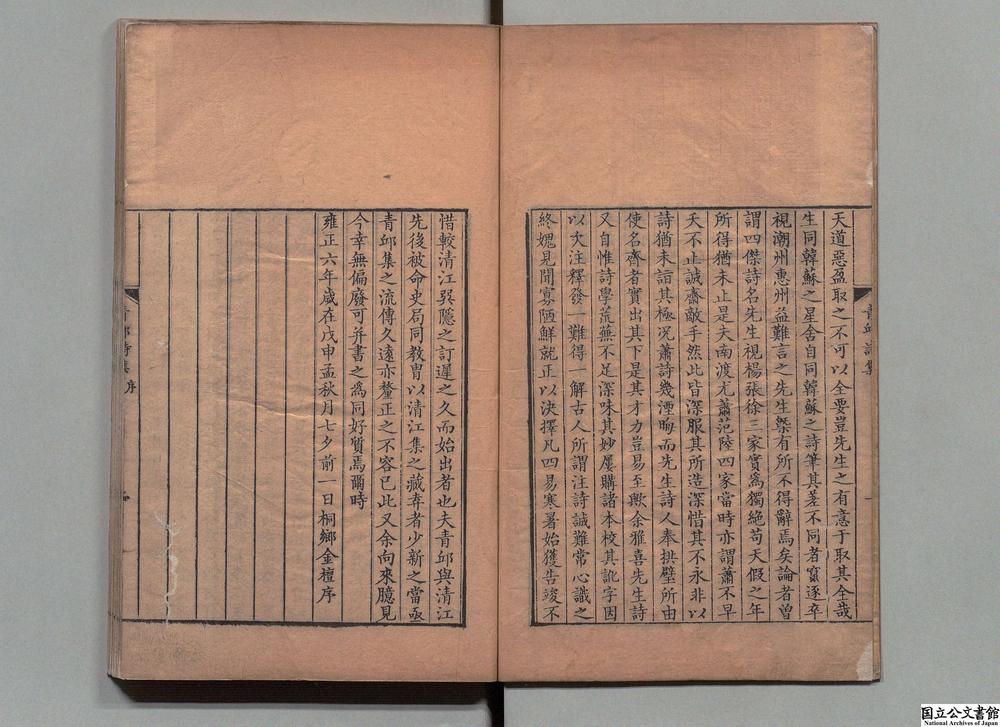 天道惡盈取之不可以全要豈先生之有意于取其全哉
生同韓蘇之星舍自同韓蘇之詩筆其差不同者竄逐卒
視潮州惠州益難言之先生槩有所不得辭焉矣論者曽
謂四傑詩名先生視楊張徐三家實爲獨絶苟天假之年
所得猶未止是夫南渡尤蕭范陸四家當時亦謂蕭不早
夭不止誠齋敵手然此皆深服其所造深惜其不永非以
詩猶未詣其極况蕭詩幾湮晦而先生詩人奉拱璧所由
使名齊者實出其下是其才力豈易至歟余雅喜先生詩
又自惟詩學荒蕪不足深味其妙屢購諸本校其訛字因
以次注釋發一難得一解古人所謂注詩誠難常心識之
終媿見聞寡陋鮮就正以决擇凡四易寒暑始獲告竣不
惜較清江巽隱之訂遲之久而始出者也夫青邱與清江
先後被命史局同教胄以清江集之藏弆者少新之當亟
青邱集之流傳久遠亦釐正之不容已此又余向來臆見
今幸無偏廢可并書之爲同好質焉爾時
雍正六年歲在戊申孟秋月七夕前一日桐鄉金檀序
青邱詩集
序
一
国立公文書館
National Archives of Japan